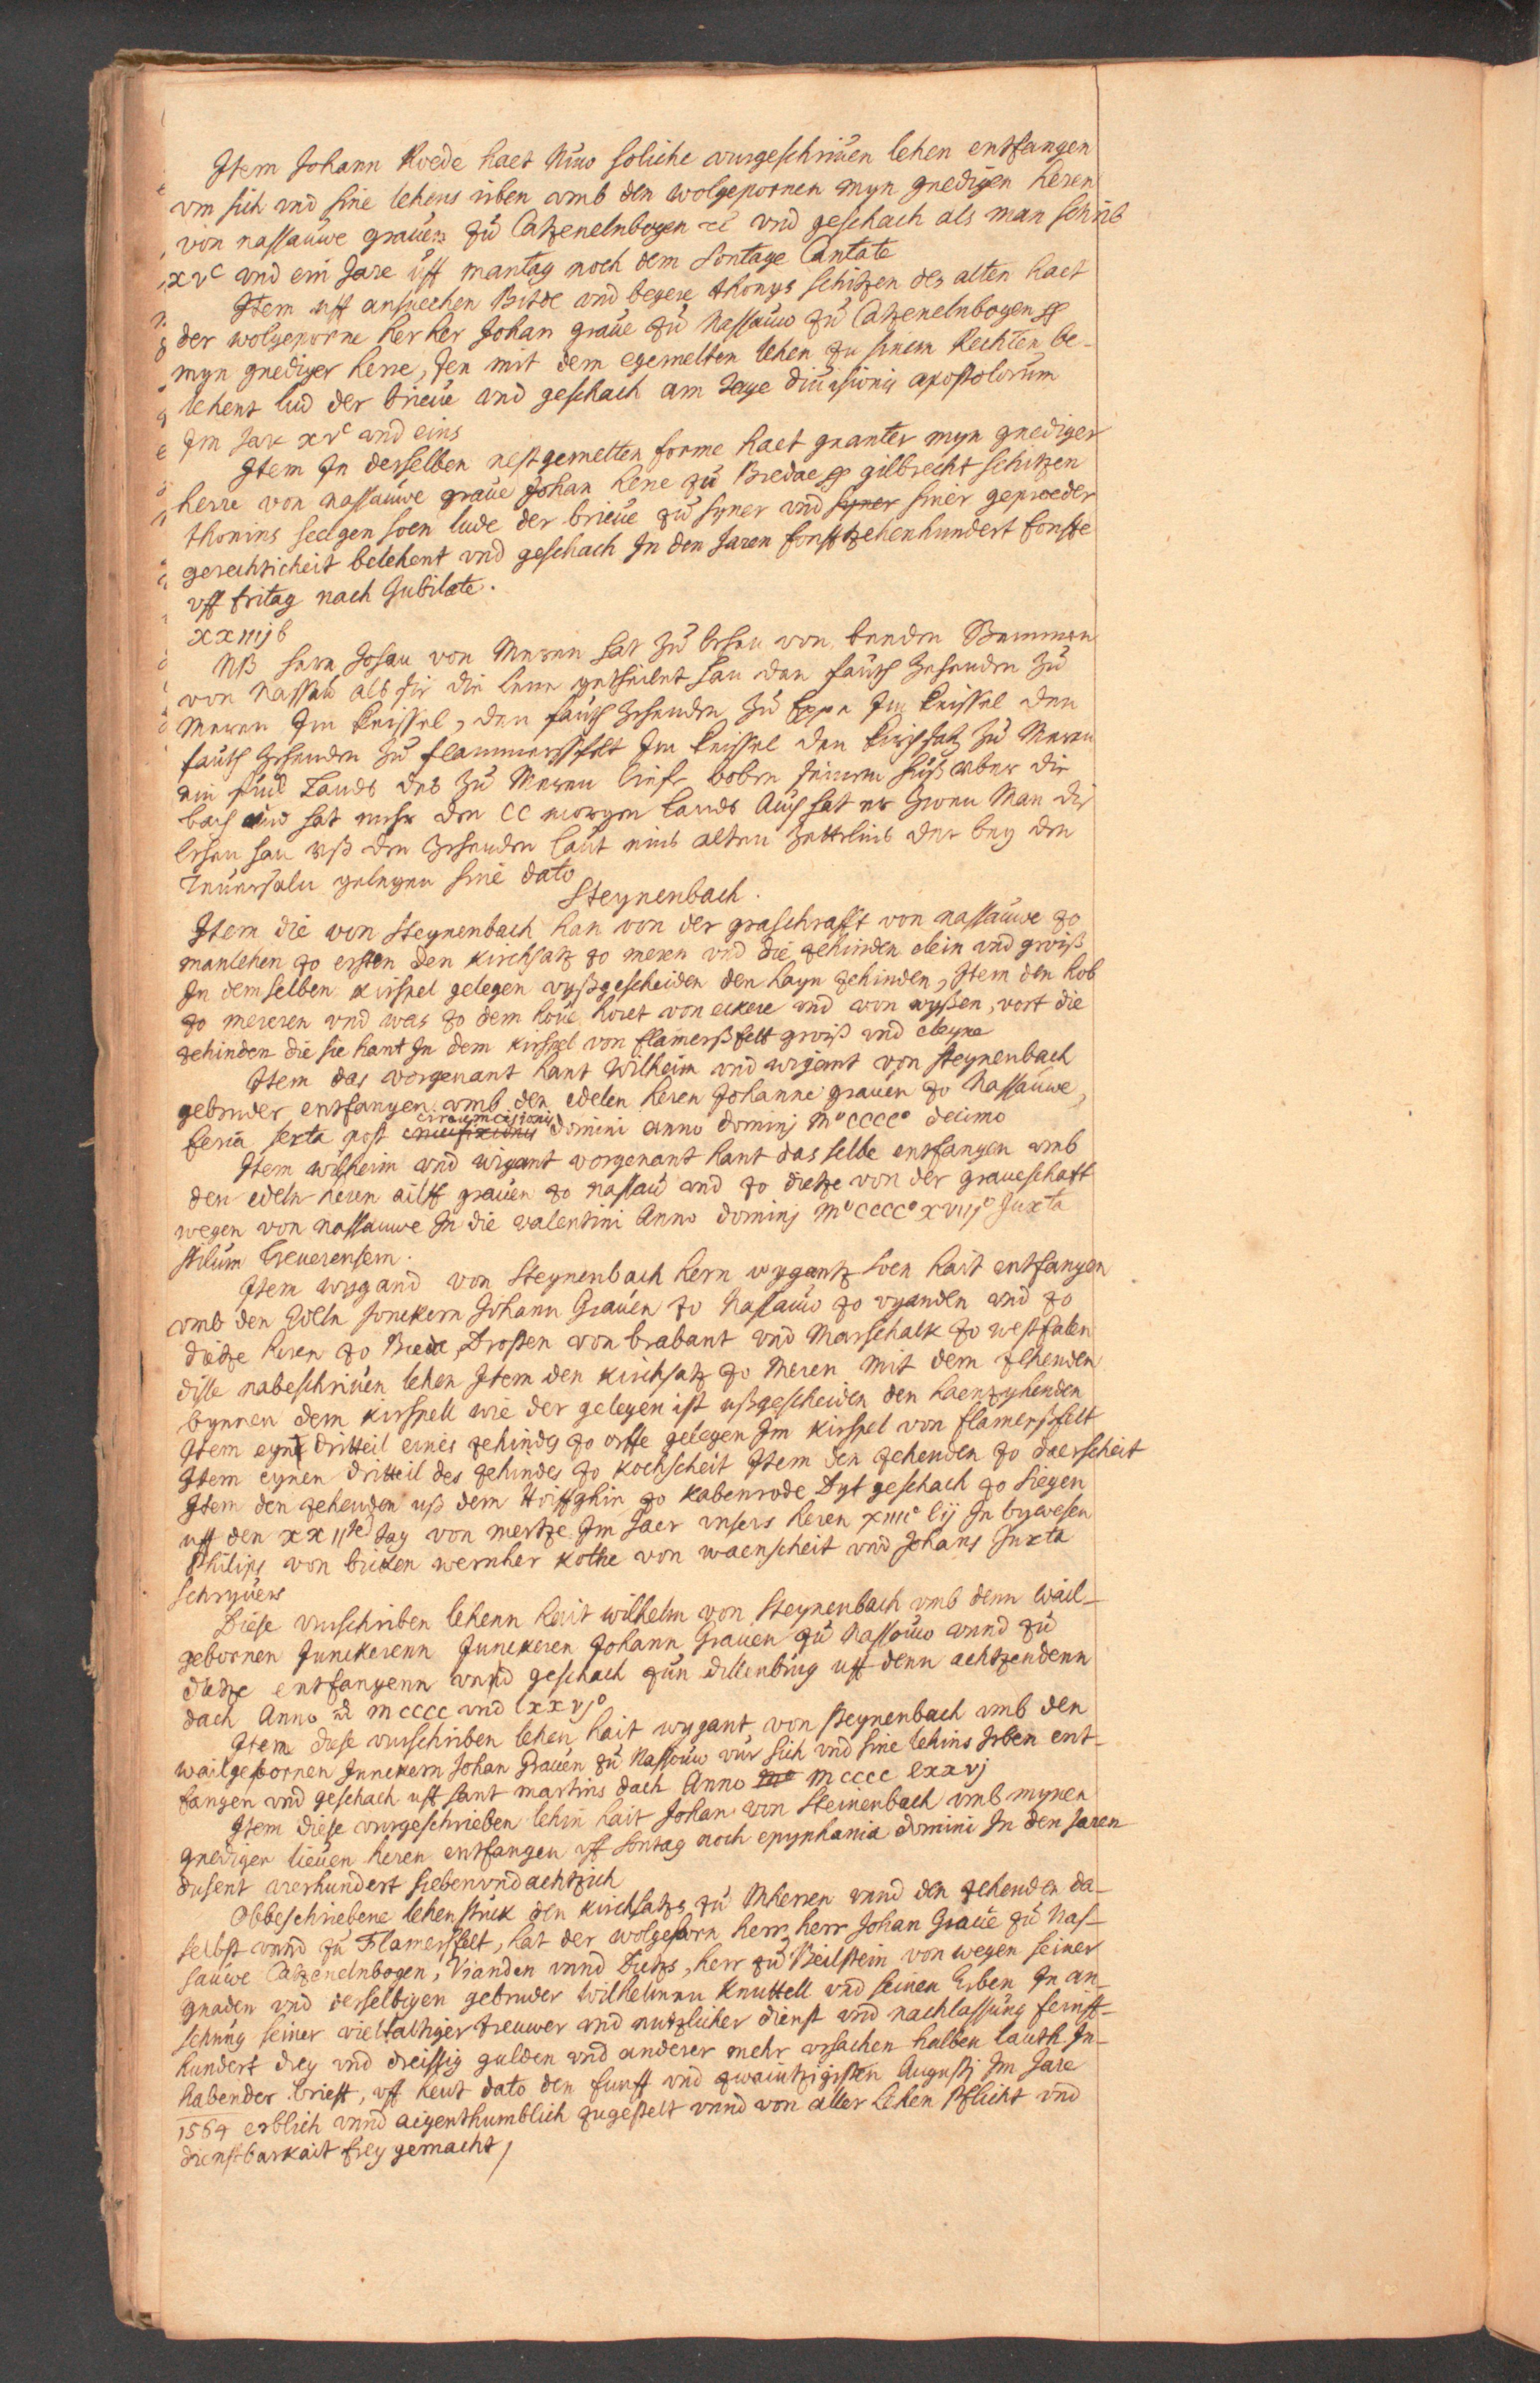 Item Johann Roede haet Nuo soliche vurgeschriuen lehen entfangen
vm sich vnd sine lehens irben vmb den wolgepornen myn gnedigen heren
von nassauwe grauen zu Catzenelnbogen rc vnd geschach als man schrib
xvc vnd ein Jare uff mantag noch dem Sontage Cantate
Item uff ansuechen Bitde vnd begere thonys schützen des alten haet
der wolgeporne her her Johan graue zu Nassauw zu Catzenelnbogen
myn gnediger herre, Jen mit dem egemelten lehen zu sinem Rechten be-
lehent lud der brieue vnd geschach am tage diuisionis apostolorum
Im Jare xvc vnd eins
Item In derselben nestgemelten forme haet gnanter myn gnediger
herre von nassauwe graue Johan here zu Bredae gilbrecht schützen
thonius seelgen soen lude der brieue zu syner vnd syner siner geproeder
gerechticheit belehent vnd geschach In den Jaren fonfftzehenhundert fonffe
vff fritag nach Jubilate.
xxiiij b
NB herr Johan von Meren hat zu lehen von beyden Stemmen
von Nassau als sie die lenn getheilet han den fauth Zehenden zu
Meren Im kirssel, den fauth Zehenden zu Eppe Im kirssel den
fauth Zehenden zu flammersfelt Im kirssel den kirchsatz zu Meren
ein stuck Lands das zu Meren boben seinem huß uber die
bach vnd hat mehr den CC morgen Lands Auch hat er zwen Man die
lehen han uß den Zehenden laut eins alten Zettelins der bey den
Reuersaln gelegen sine dato
Steynenbach.
Item die von Steynenbach han von der graschafft von nassauwe zo
manlehen zo ersten den kirchsatz zo meren vnd die zehinden clein vnd groiß
In demselben kirspel gelegen vyßgescheiden den hayn zehinden, Item den hob
zo mereren vnd was zo dem houe horet von eckere vnd von wyßen, vort die
zehinden die sie hant In dem kirspel von flamerßfelt groiß vnd cleyne
Item das vorgenant hant Wilheim vnd wigant von Steynenbach
gebruder entfangen vmb den edelen heren Johanne grauen zo Nassauwe,
feria sexta post crucifixionis circumcisionis domini anno dominj Mo CCCCo decimo
Item wilheim vnd wigant vorgenant hant dasselbe entfangen vmb
den edeln heren ailff grauen zo nassau vnd zo dietze von der graueschaft
wegen von nassauwe In die valentini Anno dominj Mo CCCCo xviijo Juxta
stilum treuerensem.
Item wygand von Steynenbach hern wygantz soen hait entfangen
vmb den Edeln Jonckern Johann Grauen zo Nassauw zo vyanden vnd zo
dietze heren zo Breda, Drosten von brabant vnd Marschalk zo westfalen
disse nabeschriuen lehen Item den kirchsatz zo Meren mit dem zehenden
bynnen dem kirspell wie der gelegen ist ußgescheiden den haenzyhenden
Item eyn dritteil eines zehindes zo orffe gelegen Im kirspel von flamerßfelt
Item eynen dritteil des zehindes zo kochscheit Item den zehenden zo daerscheit
Item den zehenden uß dem Hoiffghin zo kabenrode Dyt geschach zo Siegen
uff den xxiiten tag von mertze Im Jaer vnsers heren xiiiic lij In bywesen
Philips von bicken wernher kothe von waenscheit vnd Johans Juxta
schryuers
Diese vurschriben lehenn hait wilhelm von Steynenbach vmb denn wail-
gebornen Junckerenn Junckeren Johann Grauen zu Nassouw vnnd zu
dietze entfangenn vnnd geschach zun dillenburg uff denn achtzendenn
dach Anno rc MCCCC vnd lxxvjo
Item diese vurschriben lehen hait wygant von Steynenbach vmb den
wailgebornen Jnnckern Johan Grauen zu Nassouw vur sich vnd sine lehins Jrben ent-
fangen vnd geschach uff sant martins dach Anno Mo MCCCC lxxvj
Item diese vurgeschrieben lehin hait Johan von Steinenbach vmb mynen
gnedigen lieuen heren entfangen uff Sontag noch epyphania domini In den Jaren
dusent vierhundert siebenvndachtzich
Obbeschriebene lehenstuck den kirchsatz, zu Mherren vnnd den zehenden da-
selbst vnnd zu Flamersfelt, hat der wolgeborn herr, herr Johan Graue zu Nas-
sauwe Catzenelnbogen, Vianden vnnd Dietz, herr zu Beilstein von wegen seiner
gnaden vnd derselbigen gebruder Wilhelmnn Knuttell vnd seinen Erben In an-
sehung seiner vielfaltiger treuwer vnd nutzlicher dienst vnd nachlassung feinff-
hundert drey vnd dreissig gulden vnd anderer mehr vrsachen halben lauth In-
habender brieff, uff heut dato den funff vnd zwaintzigsten Augusti Im Jare
1564 erblich vnnd aigenthumblich zugestelt vnnd von aller lehen pflicht vnd
dienstbarkait frey gemacht,